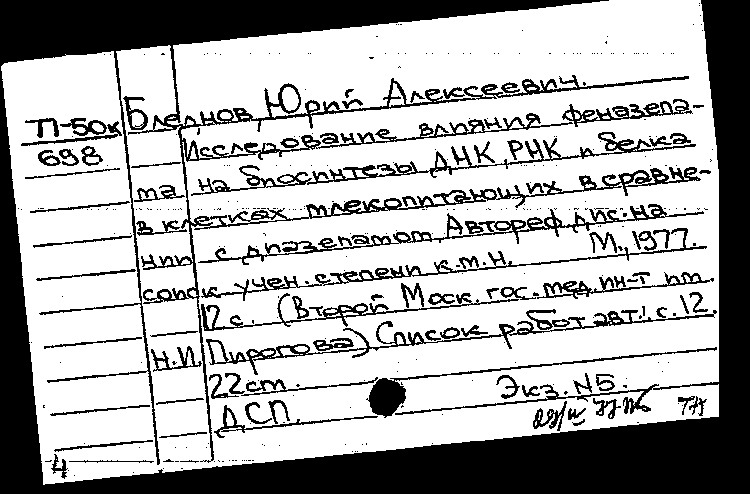 П-50к Бледнов, Юрий Алексеевич.
698 Исследование влияния феназепа-
ма на биосинтезы ДНК, РНК и белка
в клетках млекопитающих в сравне-
нии с диазепамом. Автореф. дис. на
соиск. учен. степени к.м.н. М., 1977.
12 с. (Второй Моск. гос. мед. ин-т им.
Н.И. Пирогова) Список работ авт.: с. 12.
22 см.
ДСП. Экз. №5.
4